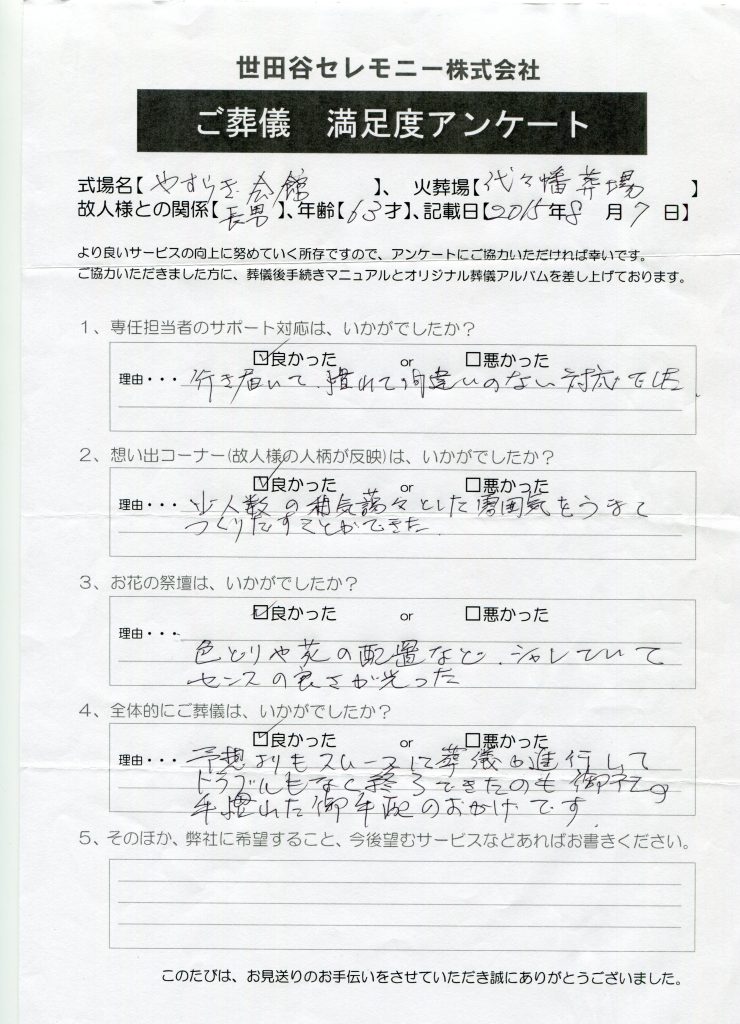 世田谷セレモニー株式会社
ご葬儀　満足度アンケート
式場名【やすらぎ会館】、火葬場【代々幡葬場】
故人様との関係【長男】、年齢【63才】、記載日【2015年8月7日】
より良いサービスの向上に努めていく所存ですので、アンケートにご協力いただければ幸いです。
ご協力いただきました方に、葬儀後手続きマニュアルとオリジナル葬儀アルバムを差し上げております。
1、専任担当者のサポート対応は、いかがでしたか？
☑良かった　or　□悪かった
理由・・・行き届いて、慣れて間違いのない対応でした。
2、想い出コーナー(故人様の人柄が反映)は、いかがでしたか？
☑良かった　or　□悪かった
理由・・・少人数の和気藹々とした雰囲気をうまく
つくりだすことができた。
3、お花の祭壇は、いかがでしたか？
☑良かった　or　□悪かった
理由・・・
色どりや花の配置など、シャレていて
センスの良さが光った
4、全体的にご葬儀は、いかがでしたか？
☑良かった　or　□悪かった
理由・・・予想よりもスムースに葬儀が進行して
トラブルもなく終了できたのも御社の
手慣れた御手配のおかげです。
5、そのほか、弊社に希望すること、今後望むサービスなどあればお書きください。
このたびは、お見送りのお手伝いをさせていただき誠にありがとうございました。